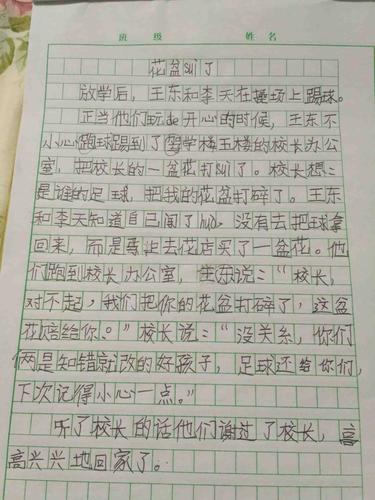 班级 姓名
花盆suì了
放学后，王东和李天在操场上踢球。
正当他们玩de开心的时候，王东不
小心跑球踢到了学楼王楼的校长办公
室，把校长的一盆花打suì了。校长想：
是谁的足球，把我的花盆打碎了。王东
和李天知道自己闯了huò，没有去把球拿
回来，而是马上去花店买了一盆花。他
们跑到校长办公室，王东说：“校长，
对不起，我们把你的花盆打碎了，这盆
花赔给你。”校长说：“没关系，你们
俩是知错就改的好孩子，足球还给你们，
下次记得小心一点。”
听了校长的话他们谢过了校长，高
高兴兴地回家了。